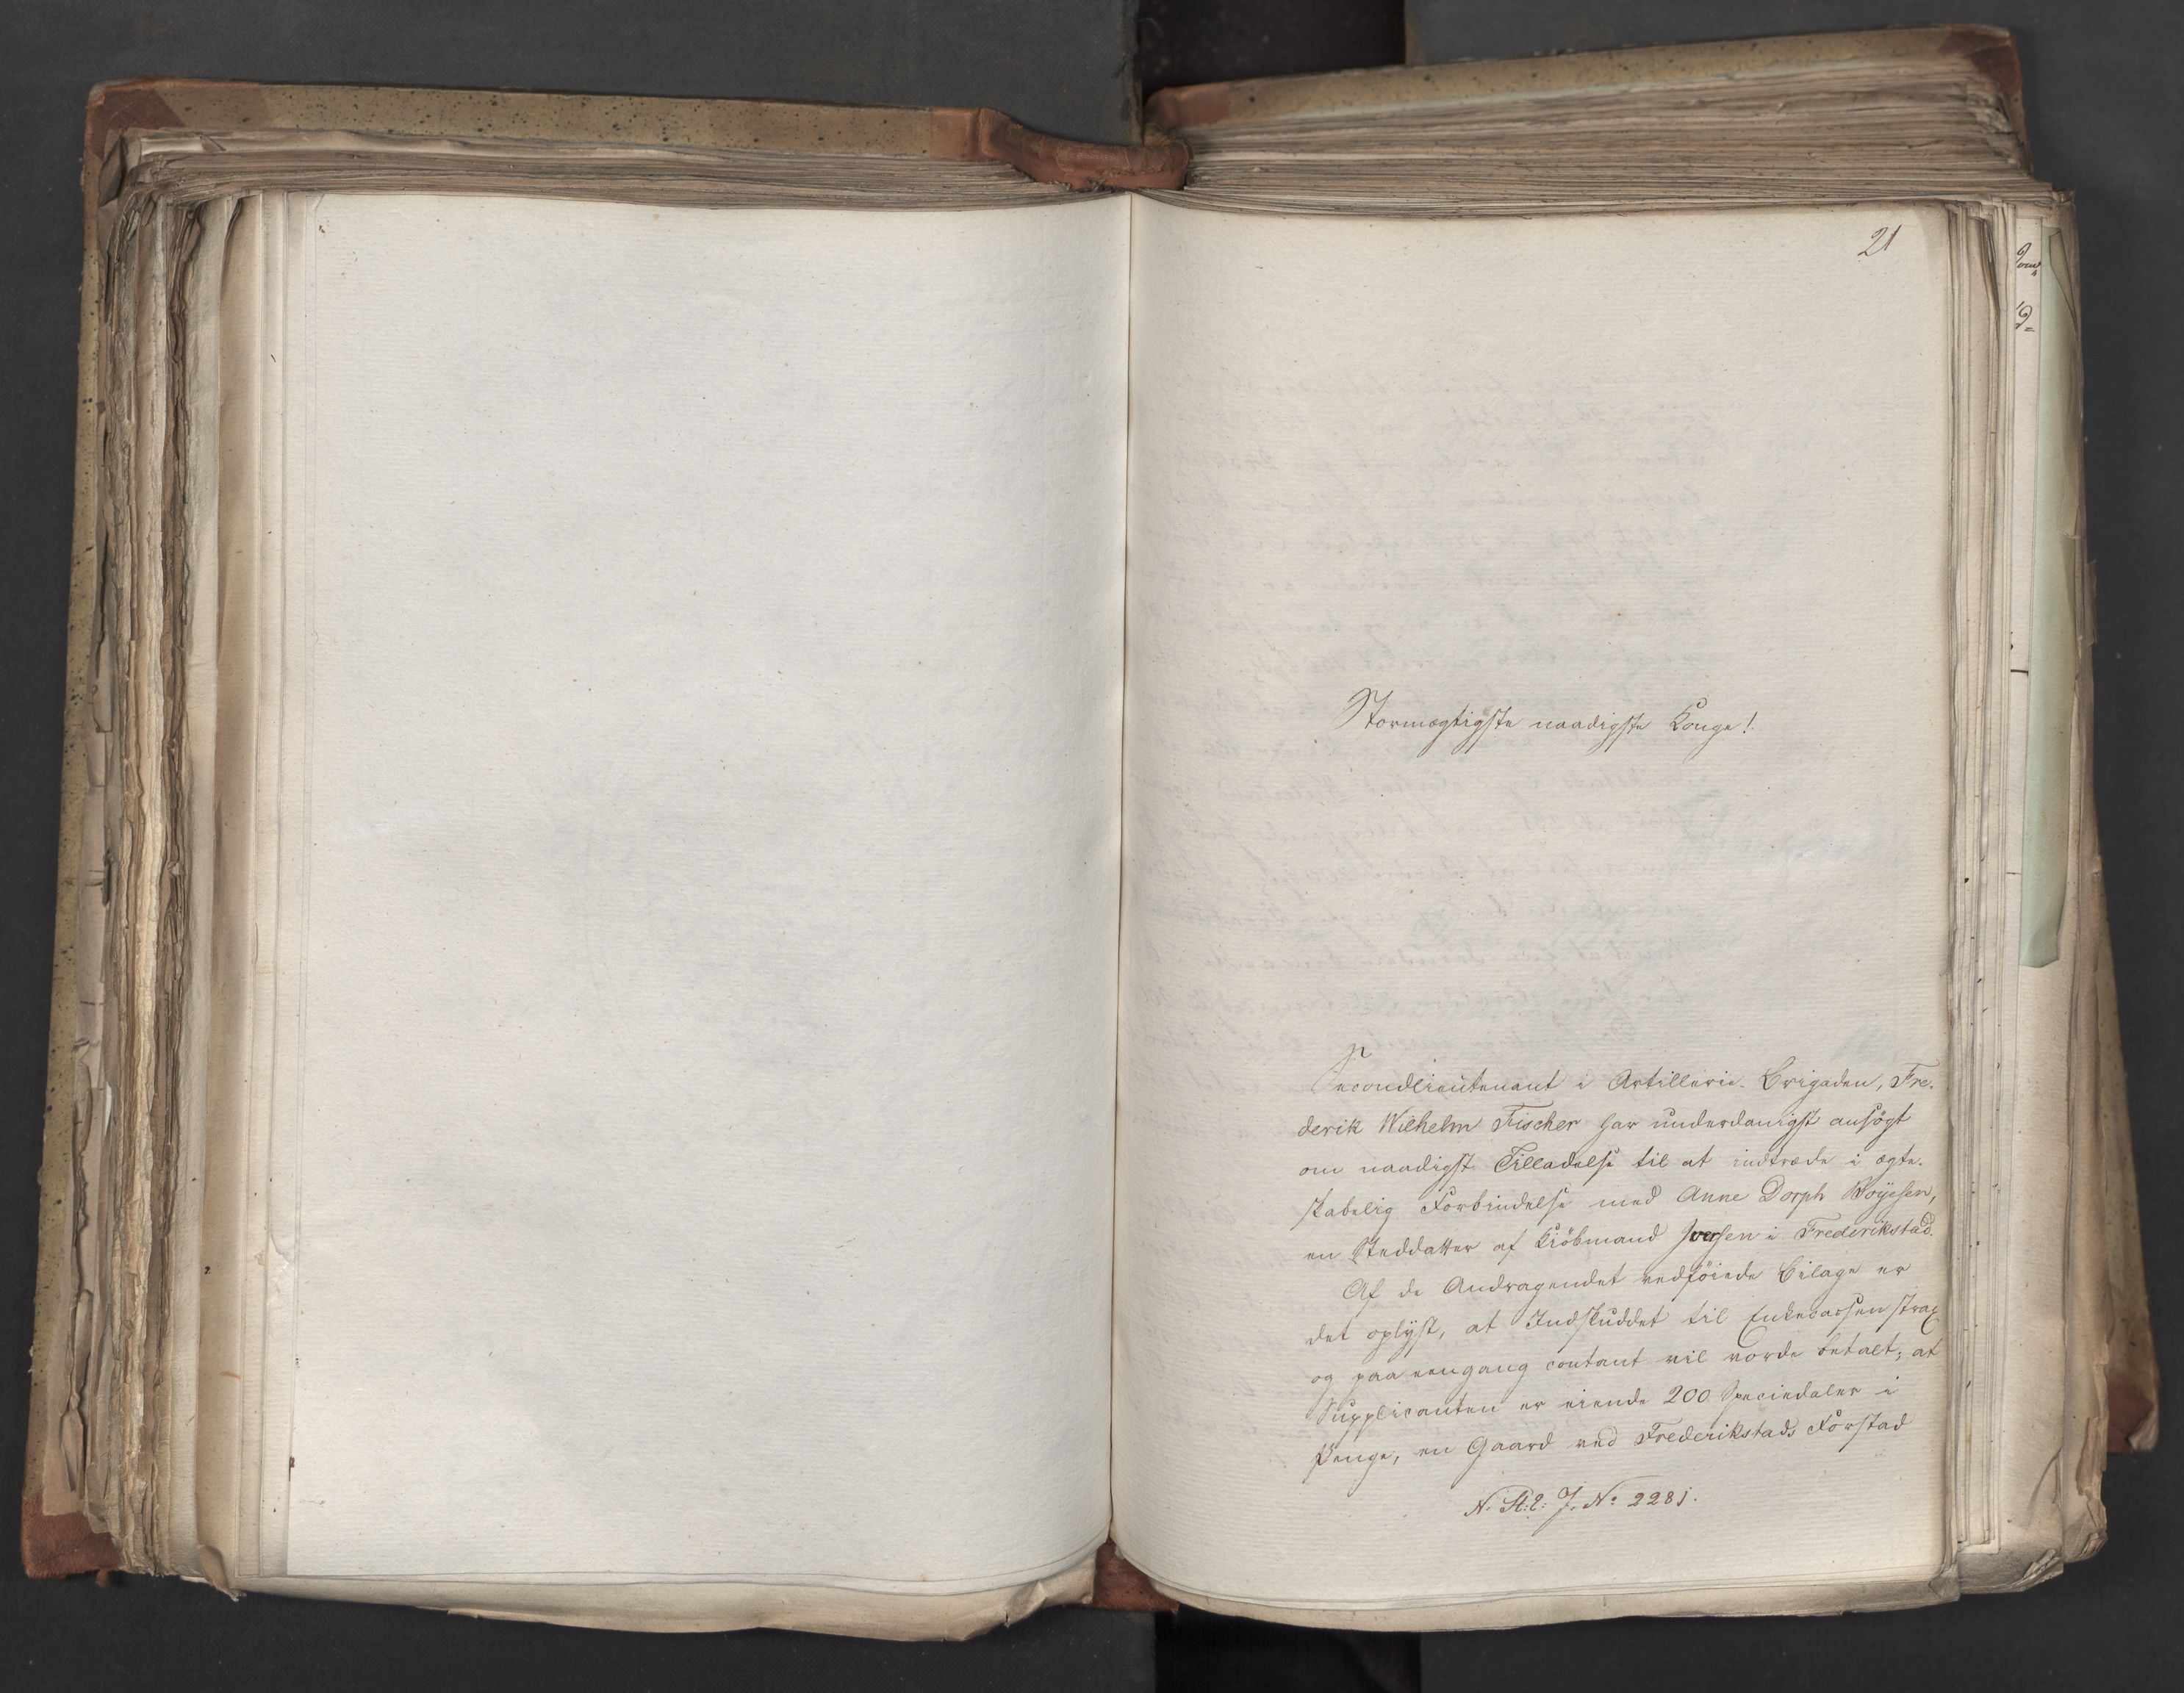 21
Stormægtigste naadigste Konge!
Secondlieutenant i Artillerie-Brigaden, Fre-
derik Wilhelm Fischer har underdanigst ansögt
om naadigst Tilladelse til at indtræde i ægte-
skabelig Forbindelse med Anne Dorph Boÿesen,
en Steddatter af Kiöbmand Iversen i Frederikstad.
Af de Andragendet vedföiede Bilage er
det oplÿst, at Indskuddet til Enkecassen strax
og paa eengang contant vil vorde betalt; at
Supplicanten er eiende 200 Speciedaler i
Penge, en Gaard ved Frederikstads Forstad
N. St: S: J. No 2281.